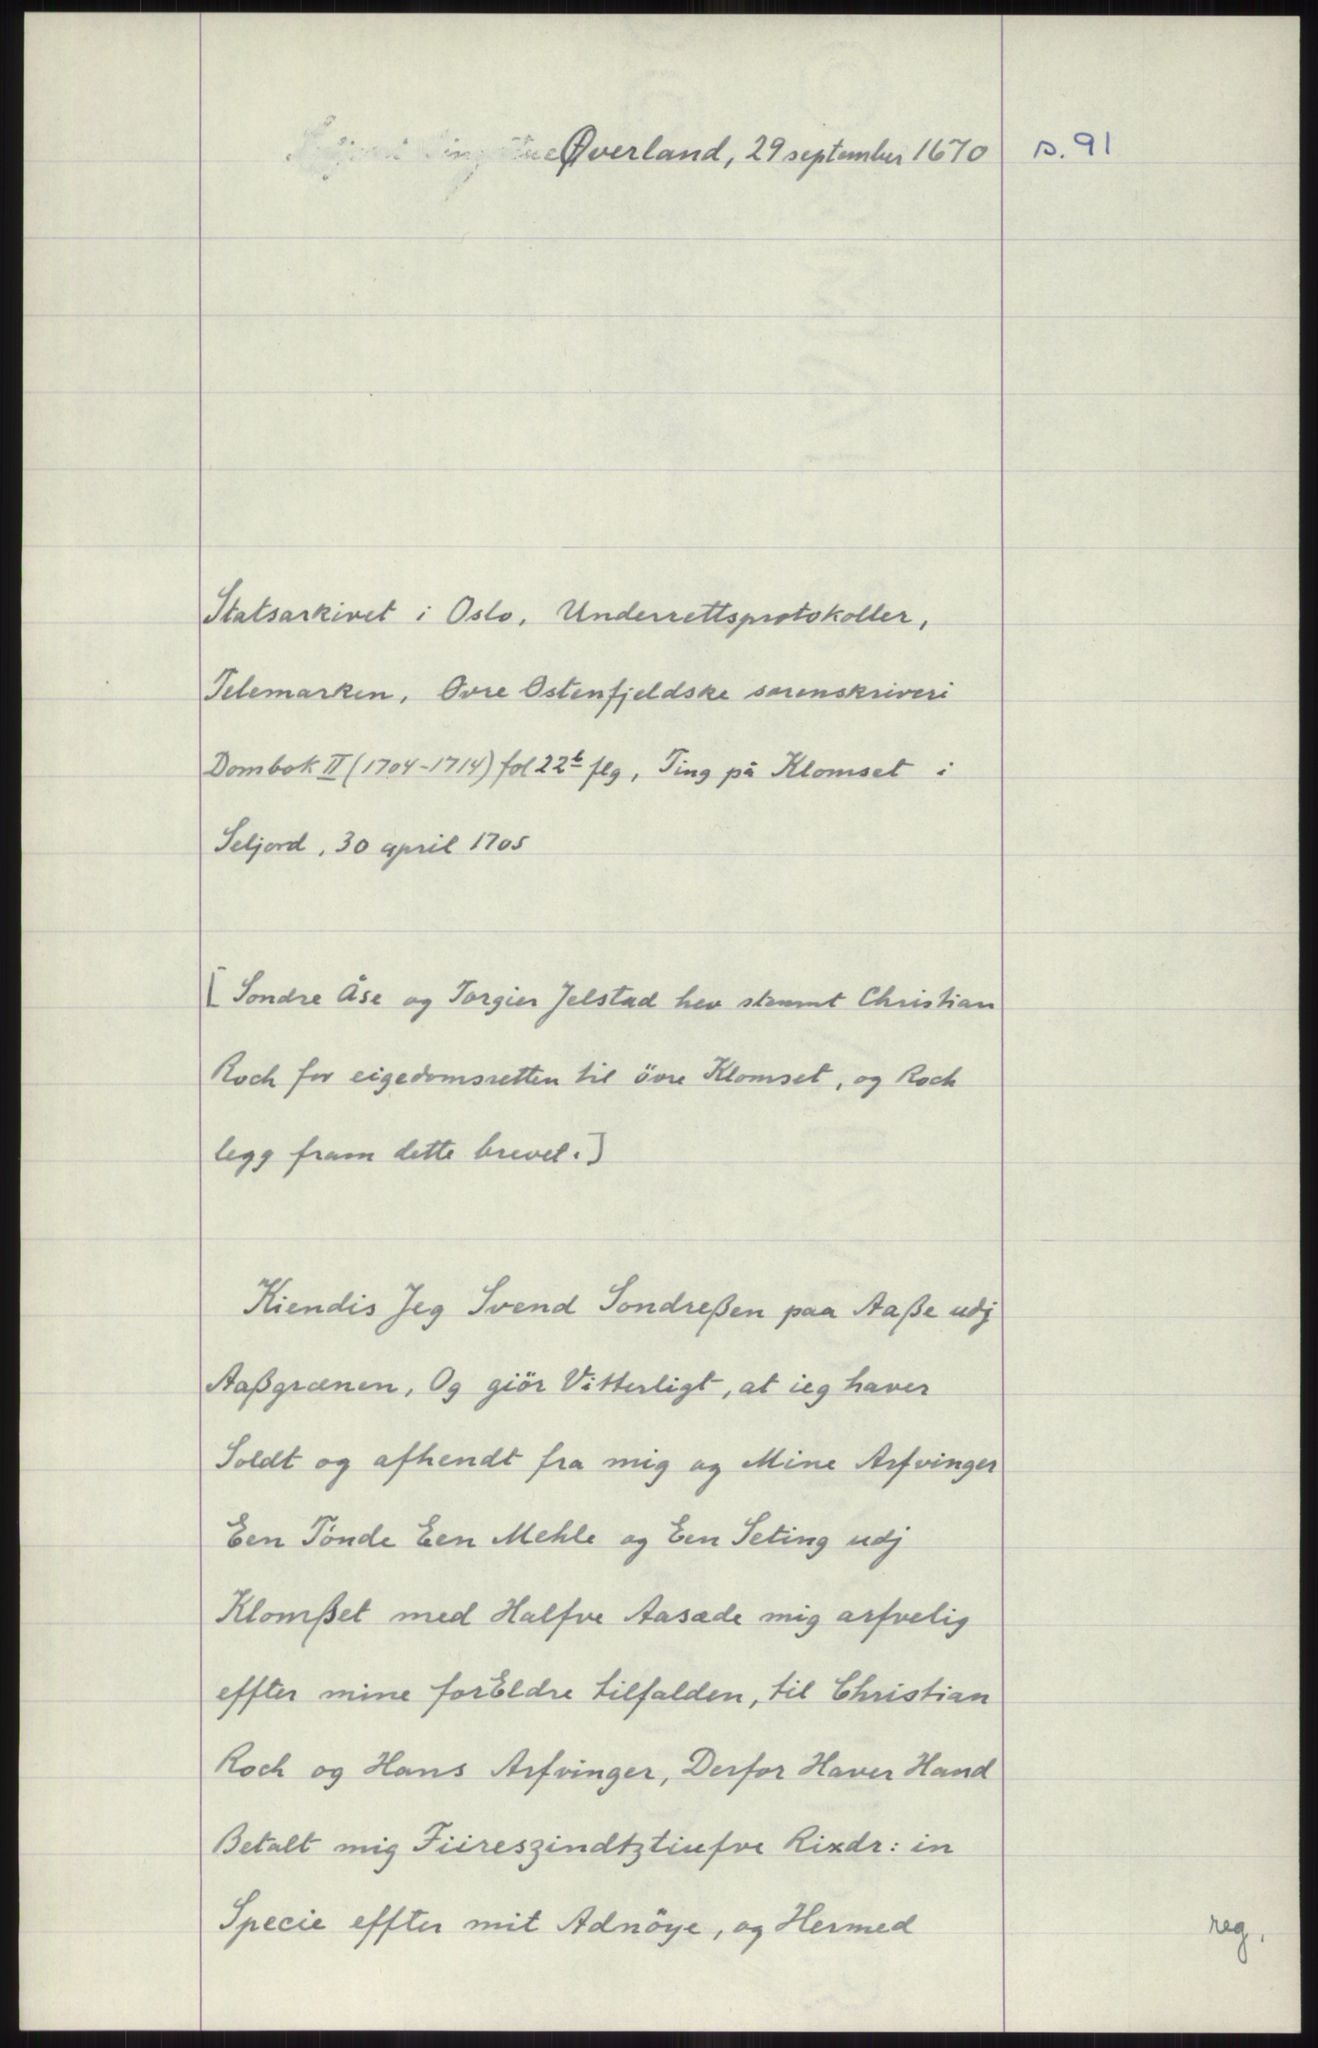 Øverland, 29 september 1670
s. 91
Statsarkivet i Oslo, Underrettsprotokoller,
Telemarken, Øvre Østenfjeldske sorenskriveri
Dombok II (1704-1714) fol 22b flg, Ting på Klomset i
Seljord, 30 april 1705
[Sondre Åse og Torgier Jelstad hev stemmt Christian
Roch for eigedomsretten til övre Klomset, og Roch
legg fram dette brevet.]
Kiendis Jeg Svend Sondreßen paa Aaße udj
Aaßgrænen, Og giör Vitterligt, at ieg haver
Soldt og afhendt fra mig og Mine Arfvinger
Een Tönde Een Mehle og Een Seting udj
Klomßet med Halfve Aasæde mig arfvelig
effter mine forEldre tilfalden, til Christian
Roch og Hans Arfvinger, Derfor Haver Hand
Betalt mig Fiireszindtztiufve Rixdr: in
Specie effter mit Adnöye, og Hermed
reg.